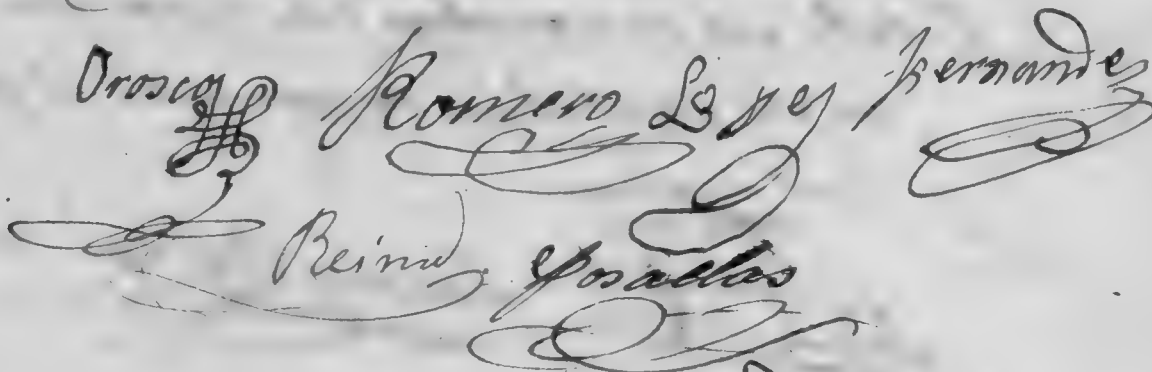 Orosco Romero Lopez Fernandez
Reina Posadas